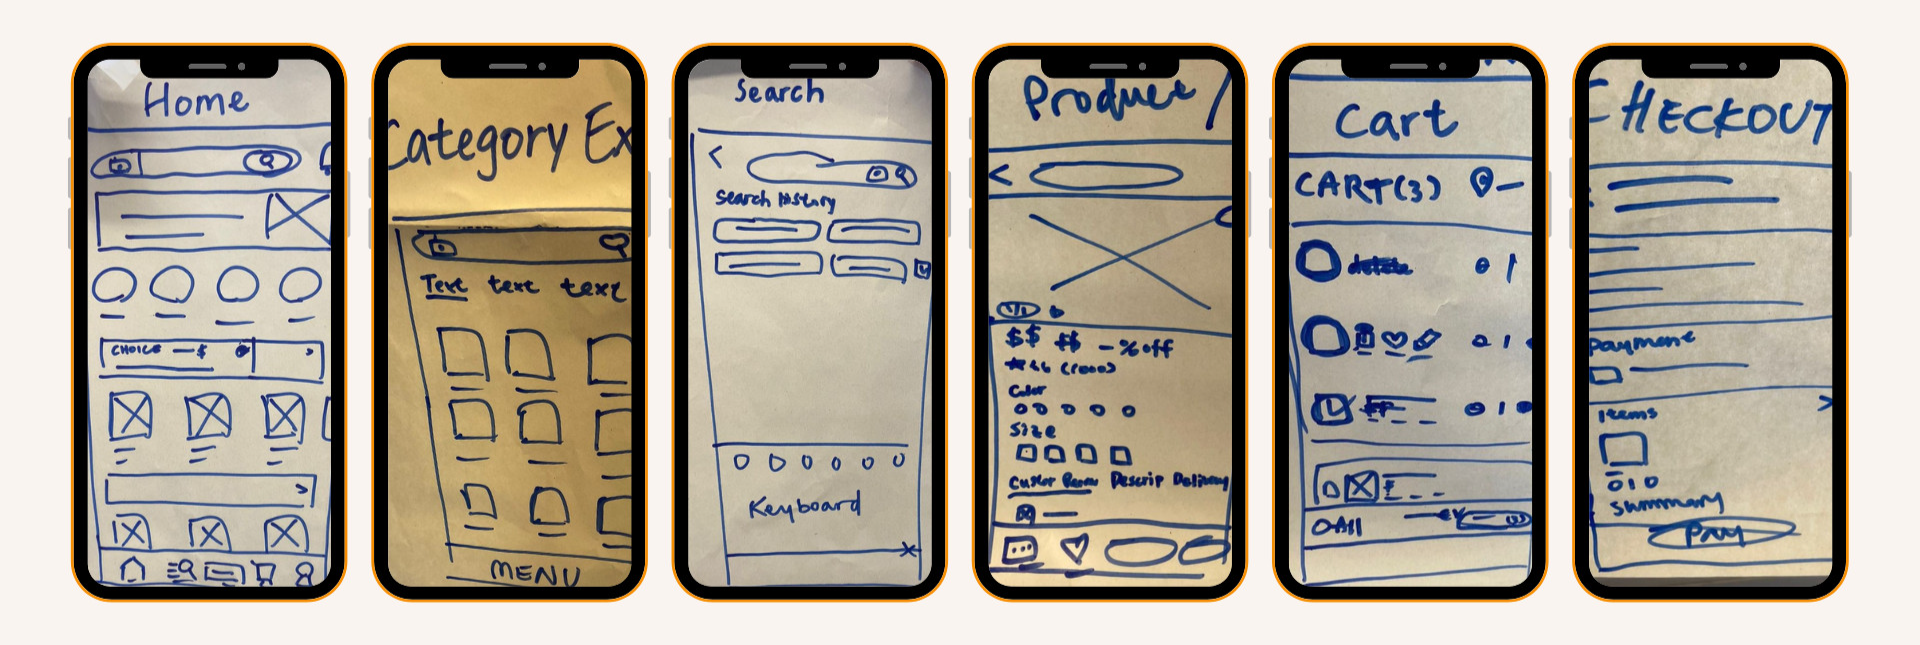 Home
CHOICE $
Category Ex
Text text text
MENU
Search
Search History
Keyboard
Product
$$ $$ -% off
(1000)
Color
Size
Descrip Delivery
Cart
CART(3)
All
CHECKOUT
payment
Items
010
Summary
Pay